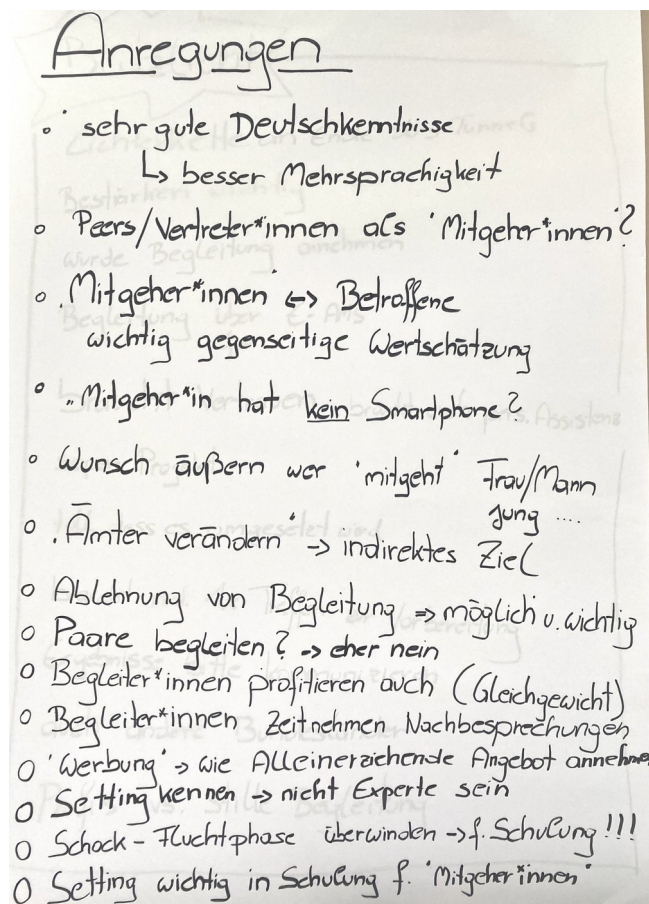 Anregungen
° sehr gute Deutschkenntnisse
↳ besser Mehrsprachigkeit
° Peers/Vertreter*innen als 'Mitgeher*innen'?
° 'Mitgeher*innen' <-> Betroffene
wichtig gegenseitige Wertschätzung
° "Mitgeher*in hat kein Smartphone?
° Wunsch äußern wer 'mitgeht' Frau/Mann
Jung ....
° 'Ämter verändern' -> indirektes Ziel
° Ablehnung von Begleitung => möglich u. wichtig
° Paare begleiten? -> eher nein
° Begleiter*innen profitieren auch (Gleichgewicht)
° Begleiter*innen Zeitnehmen Nachbesprechungen
° 'Werbung' -> wie Alleinerziehende Angebot annehme
° Setting kennen -> nicht Experte sein
° Schock-Fluchtphase überwinden -> f. Schulung!!!
° Setting wichtig in Schulung f. 'Mitgeher*innen'